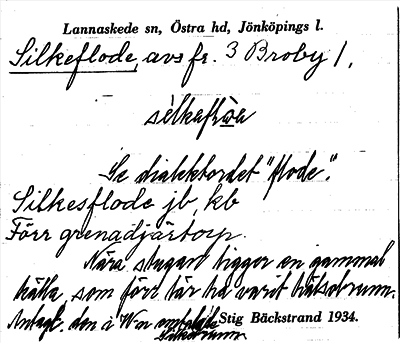 Lannaskede sn, Östra hd, Jönköpings l.
Silkeflode, avs fr. 3 Broby 1,
Se dialektordet "flode".
Silkesflode jb, kb
Förr grenadjärtorp.
Nära stugan ligger en gammal
källa, som förr lär ha varit hälsobrunn.
Antagl. den å
Stig Bäckstrand 1934.